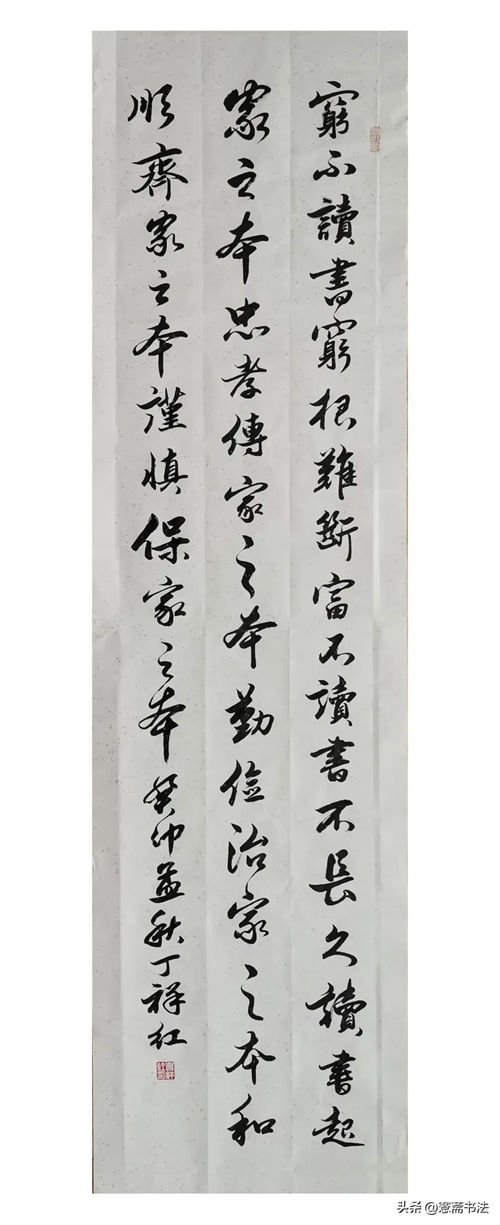 窮不讀書窮根難斷富不讀書不長久讀書起
家之本忠孝傳家之本勤儉治家之本和
順齊家之本謹慎保家之本癸卯孟秋丁祥红
头条@骞斋书法